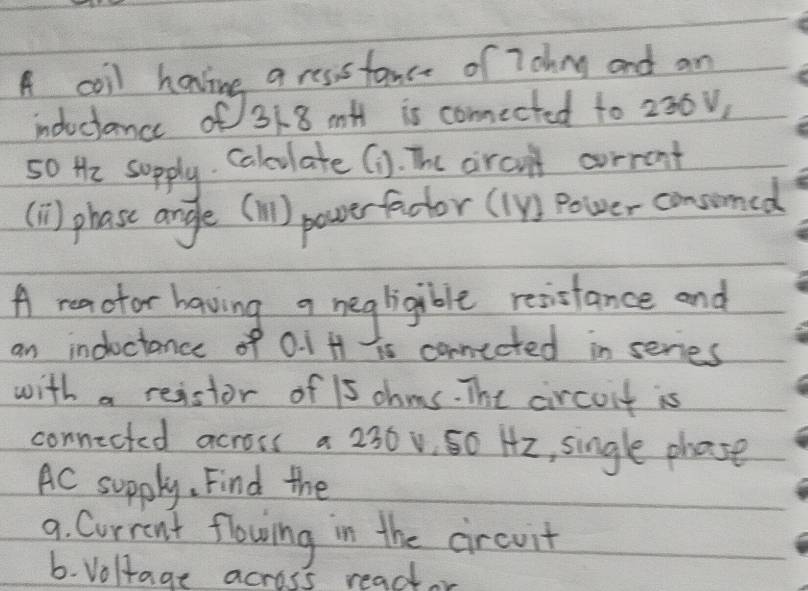 A coil having a resistance of 7 ohm and an
inductance of 31.8 mH is connected to 230 V,
50 Hz supply. Calculate (i). The circuit current
(ii) phase angle (III) powerfactor (IV) Power consumed
A reactor having a negligible resistance and
an inductance of 0.1 H is connected in series
with a resistor of 15 ohms. The circuit is
connected across a 230 V, 50 Hz, single phase
AC supply. Find the
a. Current flowing in the circuit
b. Voltage across reactor